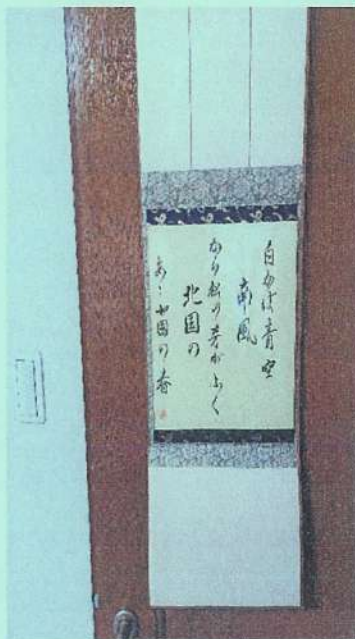 白かば青空
南風
から松の芽がふく
北国の
あゝ北国の春